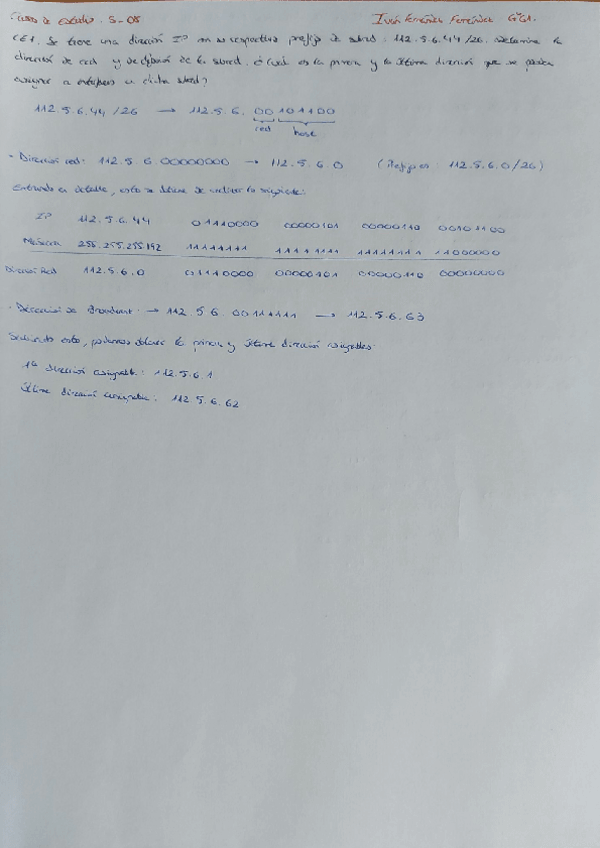 Casos de estudio. S-08
Iván Fernández Fernández GIGA.
CE1. Se tiene una dirección IP con su respectivo prefijo de subred: 112.5.6.44/26. Determina la
dirección de red y de difusión de la subred. ¿Cuál es la primera y la última dirección que se pueden
asignar a equipos en dicha subred?
112.5.6.44/26 → 112.5.6.00101100
red host
- Dirección red: 112.5.6.00000000 → 112.5.6.0 (Prefijo es: 112.5.6.0/26)
Entrando en detalle, esto se obtiene de realizar lo siguiente:
IP 112.5.6.44 01110000 00000101 00000110 00101100
Máscara 255.255.255.192 11111111 11111111 11111111 11000000
Dirección Red 112.5.6.0 01110000 00000101 00000110 00000000
- Dirección de Broadcast: → 112.5.6.00111111 → 112.5.6.63
Sabiendo esto, podemos obtener la primera y última dirección asignables:
1ª dirección asignable: 112.5.6.1
Última dirección asignable: 112.5.6.62